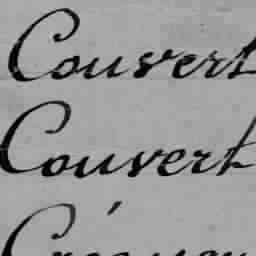 Couvert
Couvert